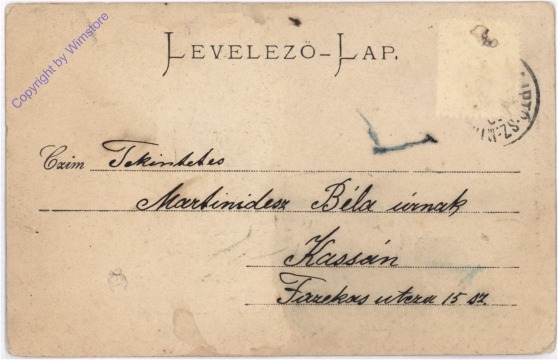 Copyright by Wimstore
LEVELEZŐ-LAP.
Czim Tekintetes
Martinidesz Béla úrnak
Kassán
Fazekas utcza 15 sz.